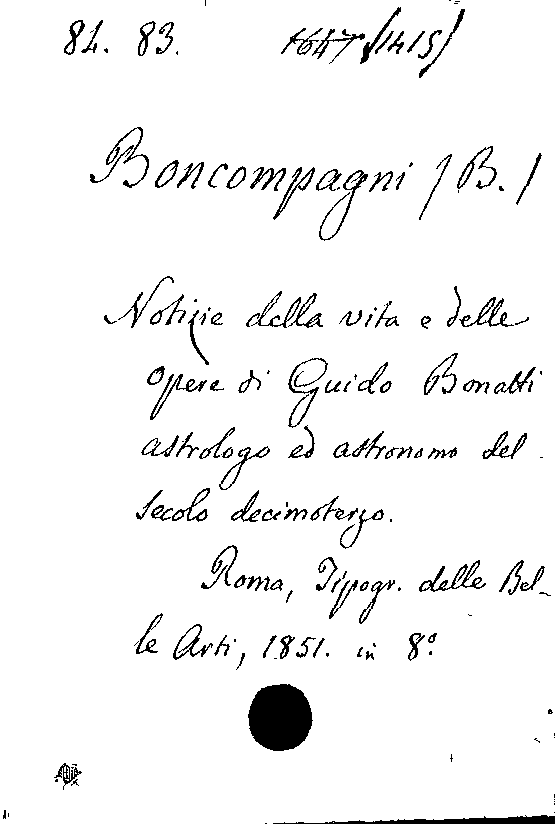 84. 83. 1647 /1415/
Boncompagni /B./
Notizie della vita e delle
opere di Guido Bonatti
astrologo ed astronomo del
secolo decimoterzo.
Roma, Tipogr. delle Bel-
le Arti, 1851. in 8º